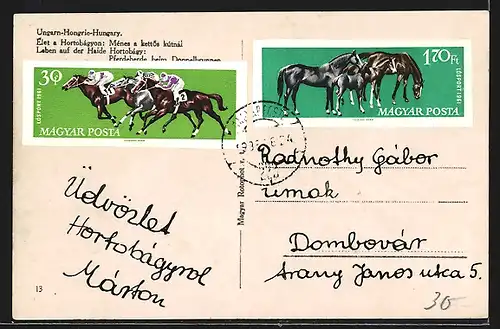 Ungarn-Hongrie-Hungary.
Élet a Hortobágyon: Ménes a kettős kútnál
Leben auf der Haide Hortobágy:
Pferdeherde beim Doppelbrunnen
30
LÓSPORT 1961
MAGYAR POSTA
1.70 Ft
LÓSPORT 1961
MAGYAR POSTA
Magyar Rotophot
Üdvözlet
Hortobágyrol
Márton
Radnothy Gábor
urnak
Dombovár
Arany Janos utca 5.
13
30